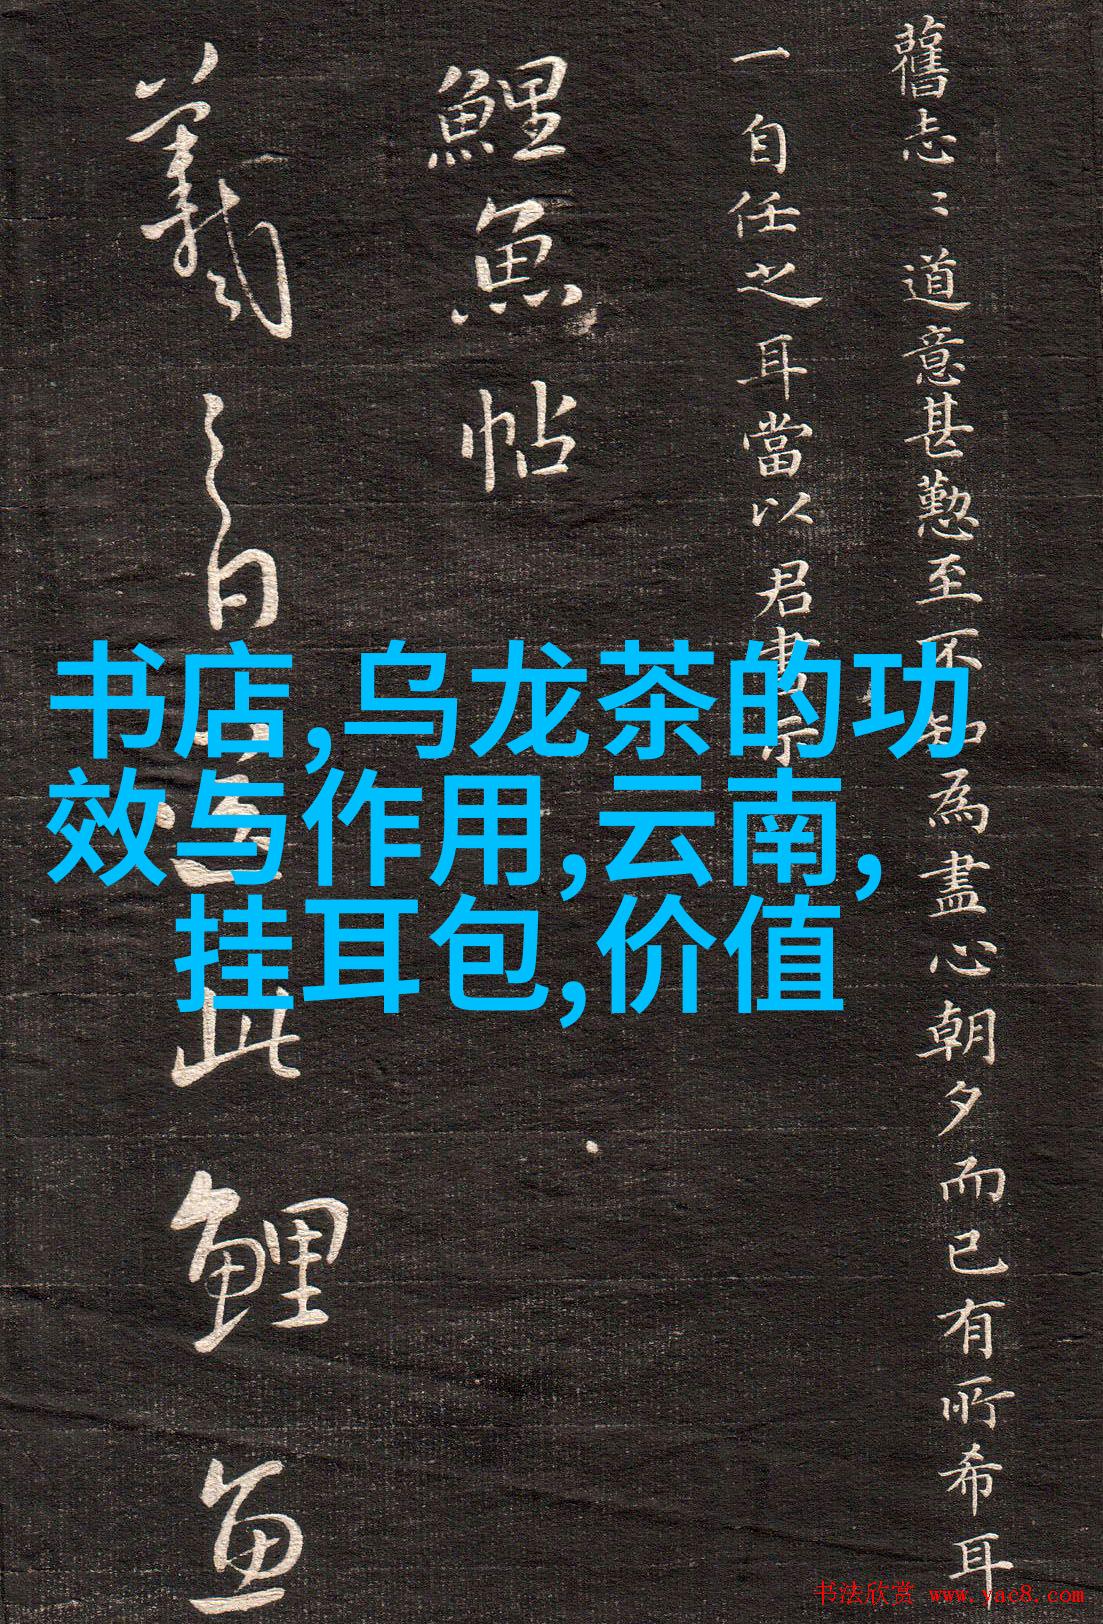 舊志〻道意甚懃至不知為盡心朝夕而已有所希耳
一自任之耳當以君書示
鯉魚帖
羲之白
此鯉魚
书店,乌龙茶的功
效与作用,云南,
挂耳包,价值
书法欣赏 www.yac8.com